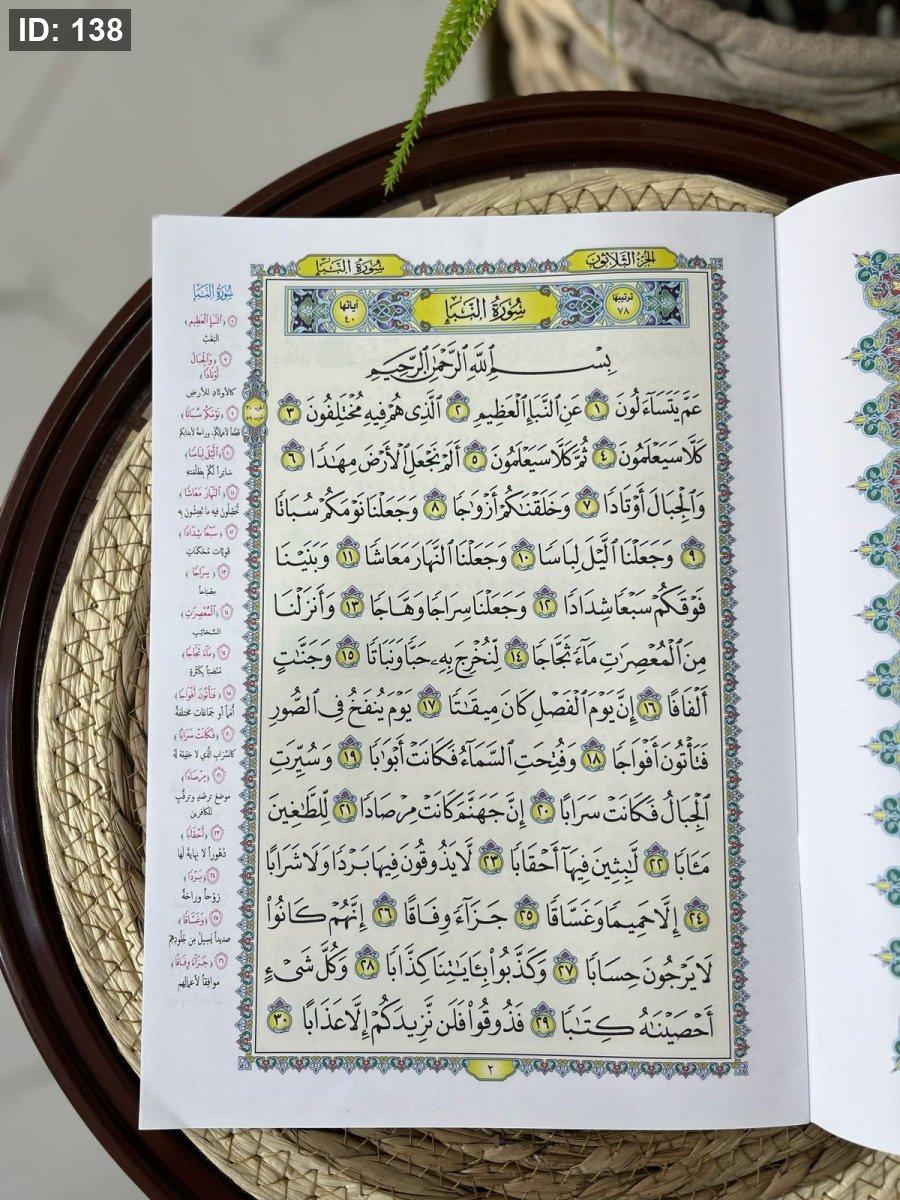 ID: 138
الجزء الثلاثون
سُورَةُ النَّبَإِ
ترتيبها ٧٨
سُورَةُ النَّبَإِ
آياتها ٤٠
بِسْمِ اللَّهِ الرَّحْمَٰنِ الرَّحِيمِ
عَمَّ يَتَسَآءَلُونَ ١ عَنِ النَّبَإِ الْعَظِيمِ ٢ الَّذِى هُمْ فِيهِ مُخْتَلِفُونَ ٣
كَلَّا سَيَعْلَمُونَ ٤ ثُمَّ كَلَّا سَيَعْلَمُونَ ٥ أَلَمْ نَجْعَلِ الْأَرْضَ مِهَٰدًا ٦
وَالْجِبَالَ أَوْتَادًا ٧ وَخَلَقْنَٰكُمْ أَزْوَٰجًا ٨ وَجَعَلْنَا نَوْمَكُمْ سُبَاتًا
٩ وَجَعَلْنَا الَّيْلَ لِبَاسًا ١٠ وَجَعَلْنَا النَّهَارَ مَعَاشًا ١١ وَبَنَيْنَا
فَوْقَكُمْ سَبْعًا شِدَادًا ١٢ وَجَعَلْنَا سِرَاجًا وَهَّاجًا ١٣ وَأَنزَلْنَا
مِنَ الْمُعْصِرَٰتِ مَآءً ثَجَّاجًا ١٤ لِّنُخْرِجَ بِهِۦ حَبًّا وَنَبَاتًا ١٥ وَجَنَّٰتٍ
أَلْفَافًا ١٦ إِنَّ يَوْمَ الْفَصْلِ كَانَ مِيقَٰتًا ١٧ يَوْمَ يُنفَخُ فِى الصُّورِ
فَتَأْتُونَ أَفْوَاجًا ١٨ وَفُتِحَتِ السَّمَآءُ فَكَانَتْ أَبْوَٰبًا ١٩ وَسُيِّرَتِ
الْجِبَالُ فَكَانَتْ سَرَابًا ٢٠ إِنَّ جَهَنَّمَ كَانَتْ مِرْصَادًا ٢١ لِّلطَّٰغِينَ
مَـَٔابًا ٢٢ لَّٰبِثِينَ فِيهَآ أَحْقَابًا ٢٣ لَّا يَذُوقُونَ فِيهَا بَرْدًا وَلَا شَرَابًا
٢٤ إِلَّا حَمِيمًا وَغَسَّاقًا ٢٥ جَزَآءً وِفَاقًا ٢٦ إِنَّهُمْ كَانُوا۟
لَا يَرْجُونَ حِسَابًا ٢٧ وَكَذَّبُوا۟ بِـَٔايَٰتِنَا كِذَّابًا ٢٨ وَكُلَّ شَىْءٍ
أَحْصَيْنَٰهُ كِتَٰبًا ٢٩ فَذُوقُوا۟ فَلَن نَّزِيدَكُمْ إِلَّا عَذَابًا ٣٠
٢
سُورَةُ النَّبَإِ
٢ ﴿النَّبَإِ الْعَظِيمِ﴾
البَعْث
٧ ﴿وَالْجِبَالَ
أَوْتَادًا﴾
كالأوتاد للأرض
٩ ﴿نَوْمَكُمْ سُبَاتًا﴾
قطعاً لأعمالكم، وراحة لأبدانكم
١٠ ﴿الَّيْلَ لِبَاسًا﴾
ساتراً لكم بظلمته
١١ ﴿النَّهَارَ مَعَاشًا﴾
تُحصّلون فيه ما تعيشون به
١٢ ﴿سَبْعًا شِدَادًا﴾
قويّات محكمات
١٣ ﴿سِرَاجًا﴾
مصباحاً
١٤ ﴿الْمُعْصِرَٰتِ﴾
السّحائب
١٤ ﴿مَآءً ثَجَّاجًا﴾
مُنْصَبّاً بكثرة
١٨ ﴿فَتَأْتُونَ أَفْوَاجًا﴾
أمماً أو جماعات مختلفة
٢٠ ﴿فَكَانَتْ سَرَابًا﴾
كالسّراب الّذي لا حقيقة له
٢١ ﴿مِرْصَادًا﴾
موضع ترصّدٍ وترقّبٍ
للكافرين
٢٣ ﴿أَحْقَابًا﴾
دُهُوراً لا نهاية لها
٢٤ ﴿بَرْدًا﴾
رَوْحاً وراحةً
٢٥ ﴿وَغَسَّاقًا﴾
صديداً يسيل من جلودهم
٢٦ ﴿جَزَآءً وِفَاقًا﴾
موافِقاً لأعمالهم